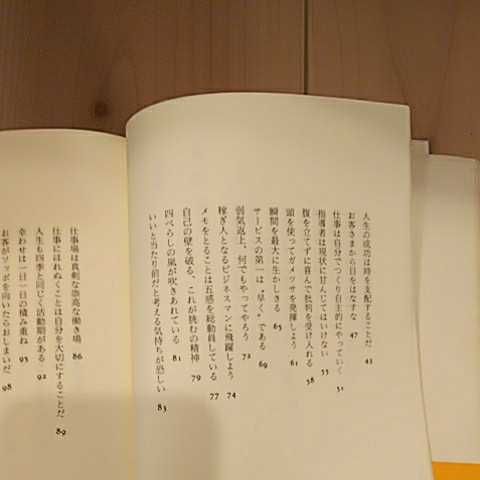 人生の成功は時を支配することだ 43
お客さまから目をはなすな 47
仕事は自分でつくり自主的にやっていく 51
指導者は現状に甘んじてはいけない 55
腹を立てずに喜んで批判を受け入れる 58
頭を使ってガメツサを発揮しよう 61
瞬間を最大に生かしきる 65
サービスの第一は“早く”である 69
弱気返上、何でもやってやろう 72
稼ぎ人となるビジネスマンに飛躍しよう 74
メモをとることは五感を総動員している 77
自己の壁を破る、これが挑むの精神 79
四べらしの風が吹きあれている 81
いいと当たり前だと考える気持ちが恐しい 83
仕事場は真剣な崇高な働き場 86
仕事にほれぬくことは自分を大切にすることだ 89
人生も四季と同じく活動期がある 92
幸わせは一日一日の積み重ね 95
お客がソッポを向いたらおしまいだ 98